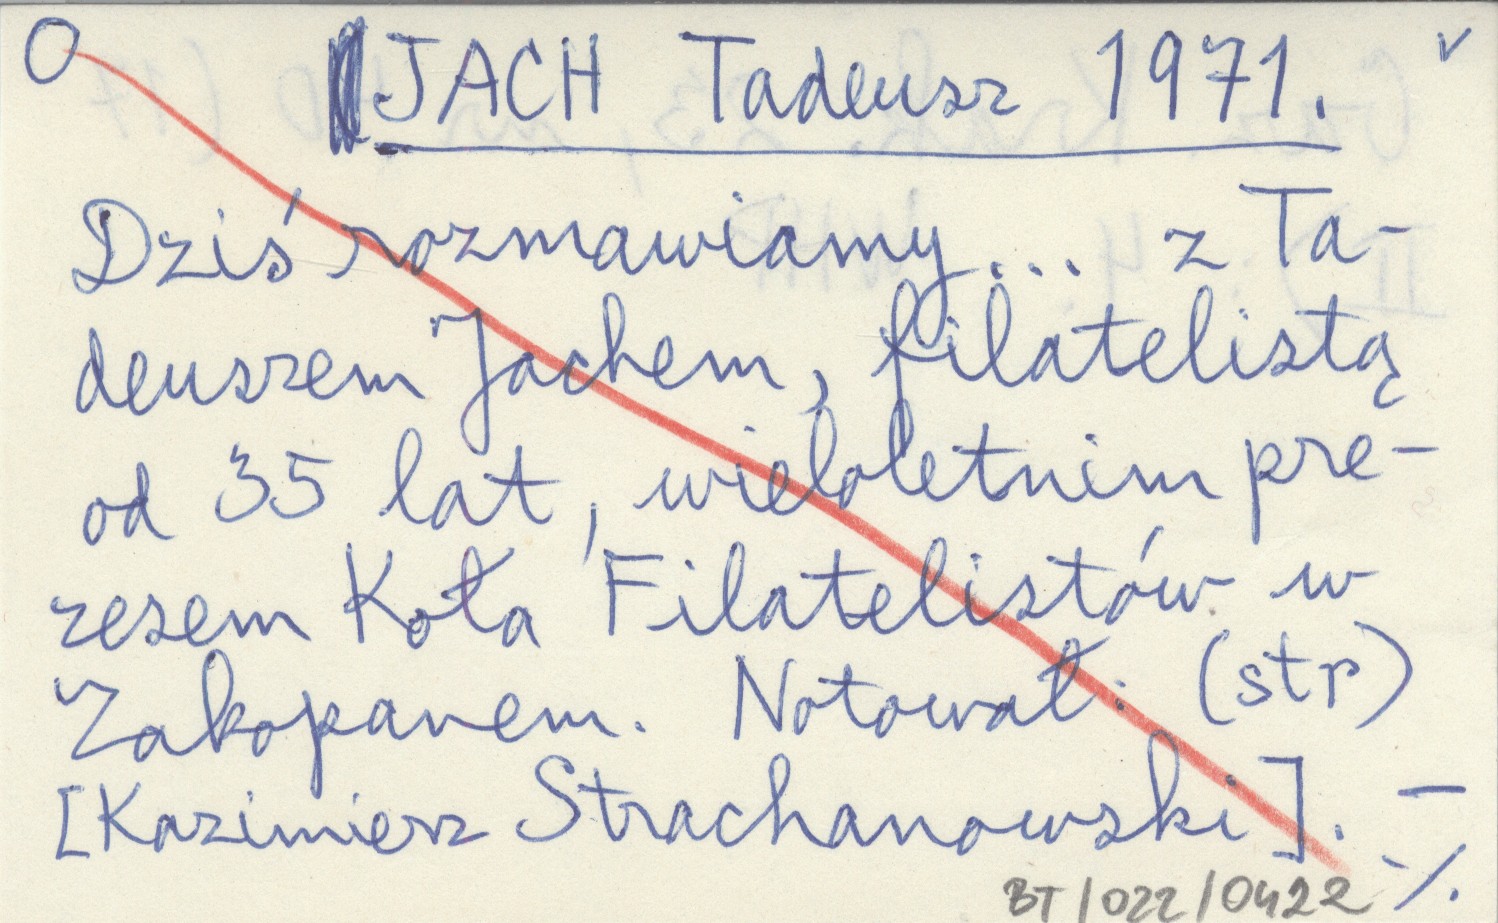 O JACH Tadeusz 1971. v
Dziś rozmawiamy... z Ta-
deuszem Jachem, filatelistą
od 35 lat, wieloletnim pre-
zesem Koła Filatelistów w
Zakopanem. Notował: (str)
[Kazimierz Strachanowski]. —
-/.
BT/022/0422